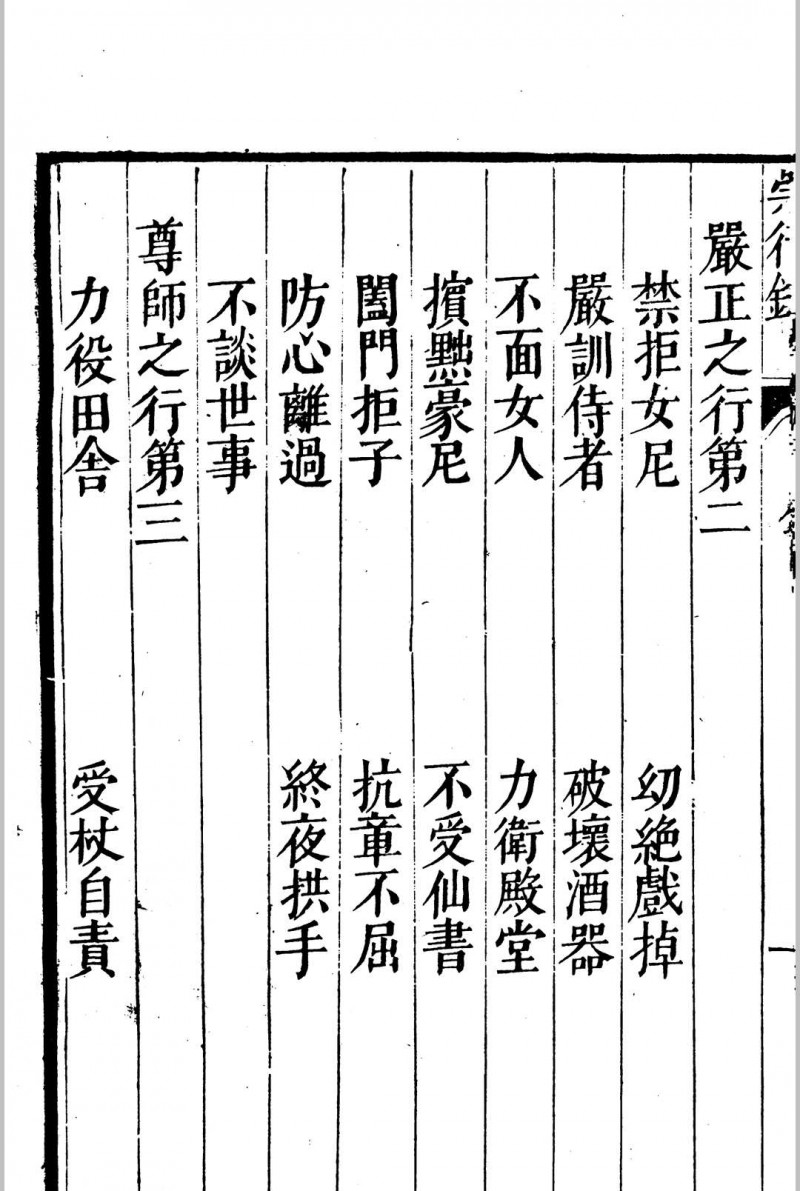 崇行錄
嚴正之行第二
禁拒女尼　幼絶戲掉
嚴訓侍者　破壞酒器
不面女人　力衛殿堂
擯黜豪尼　不受仙書
闔門拒子　抗章不屈
防心離過　終夜拱手
不談世事
尊師之行第三
力役田舍　受杖自責